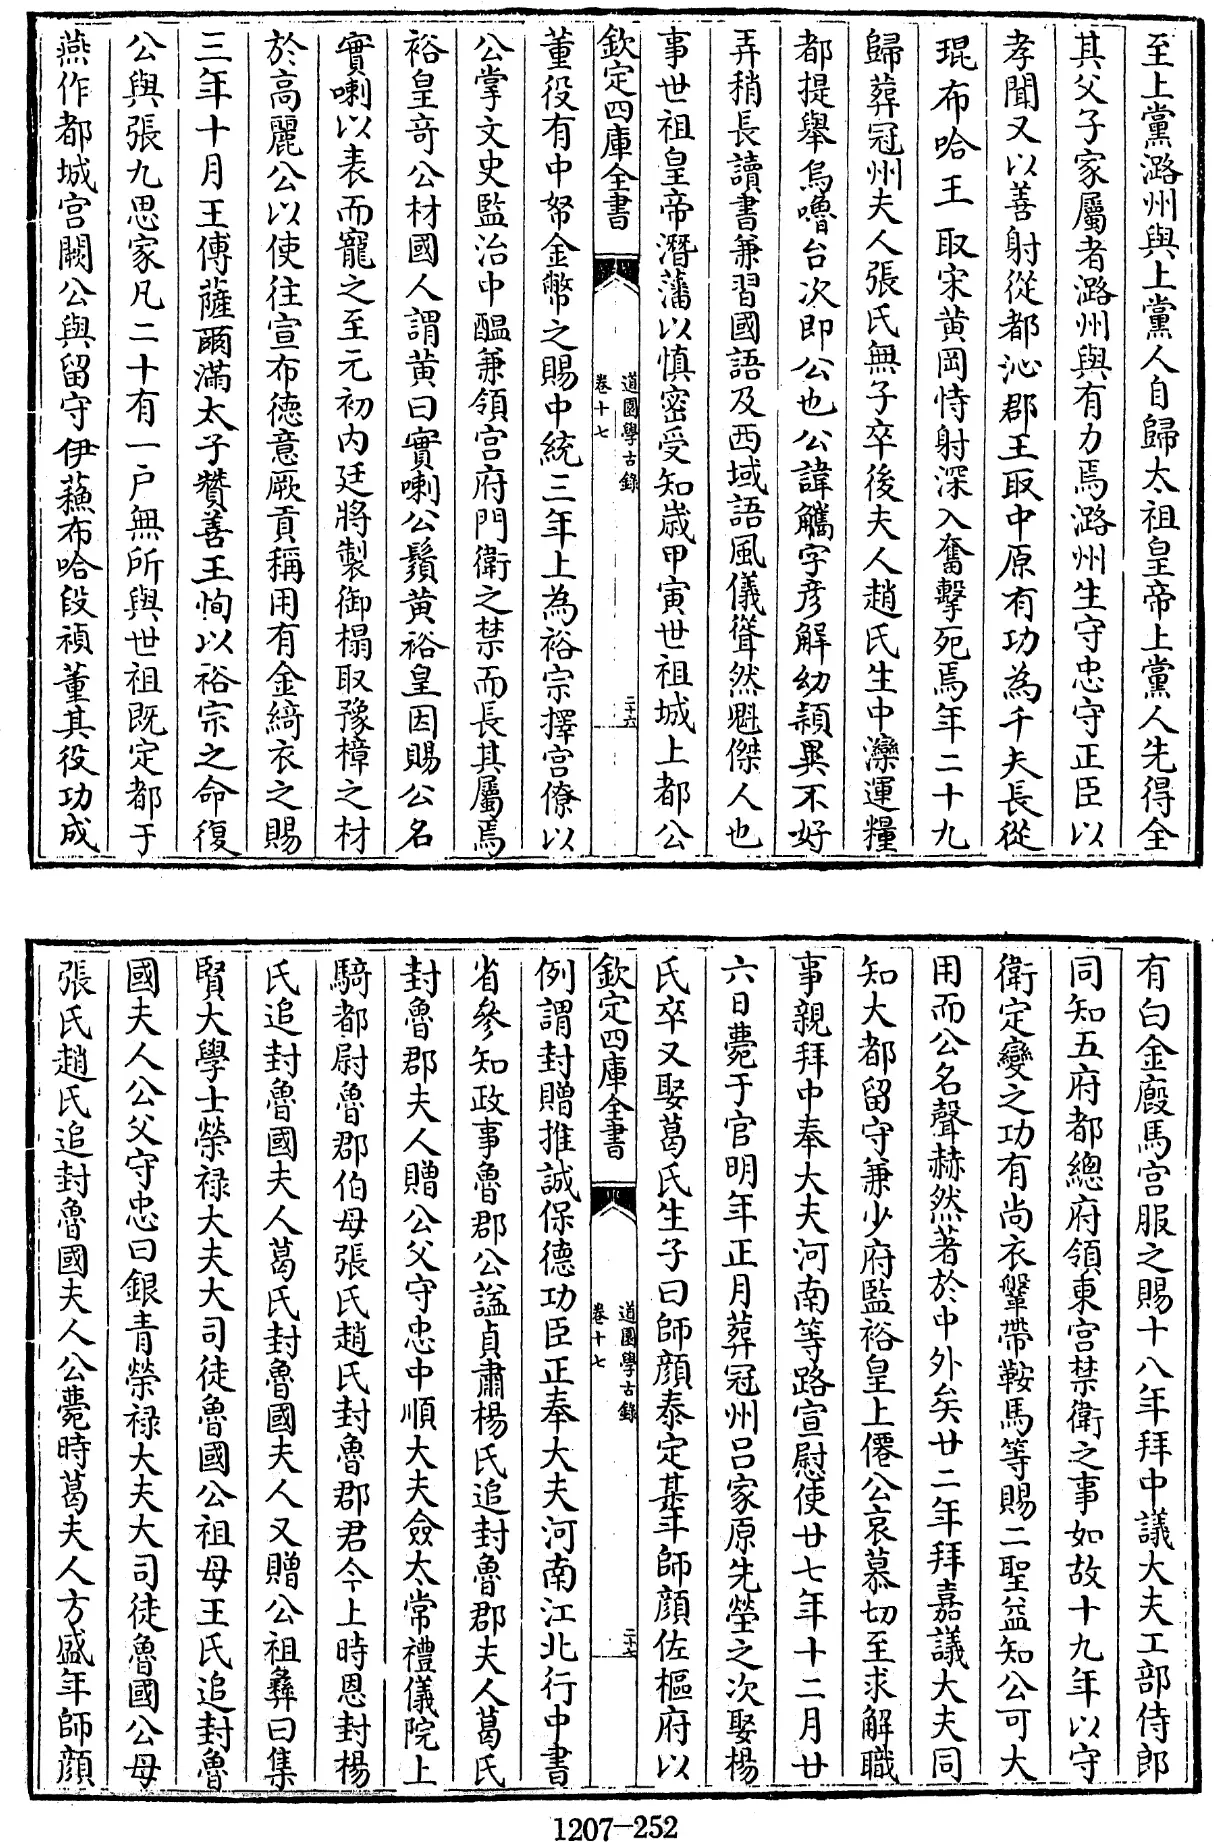 至上黨潞州與上黨人自歸太祖皇帝上黨人先得全
其父子家屬者潞州與有力焉潞州生守忠守正臣以
孝聞又以善射從都沁郡王取中原有功為千夫長從
琨布哈王取宋黄岡恃射深入奮擊死焉年二十九
歸葬冠州夫人張氏無子卒後夫人趙氏生中灤運糧
都提舉烏嚕台次即公也公諱觿字彦解幼穎異不好
弄稍長讀書兼習國語及西域語風儀聳然魁傑人也
事世祖皇帝潛藩以慎密受知歳甲寅世祖城上都公
欽定四庫全書
道園學古錄
卷十七
二十六
董役有中帑金幣之賜中統三年上為裕宗擇宫僚以
公掌文史監治中醖兼領宫府門衛之禁而長其屬焉
裕皇竒公材國人謂黄曰實喇公鬚黄裕皇因賜公名
實喇以表而寵之至元初内廷將製御榻取豫樟之材
於高麗公以使往宣布德意厥貢稱用有金綺衣之賜
三年十月王傅薩爾滿太子贊善王恂以裕宗之命復
公與張九思家凡二十有一户無所與世祖既定都于
燕作都城宫闕公與留守伊蘓布哈段禎董其役功成
有白金廏馬宫服之賜十八年拜中議大夫工部侍郎
同知五府都總府領東宫禁衛之事如故十九年以守
衛定變之功有尚衣鞶帶鞍馬等賜二聖益知公可大
用而公名聲赫然著於中外矣廿二年拜嘉議大夫同
知大都留守兼少府監裕皇上僊公哀慕切至求解職
事親拜中奉大夫河南等路宣慰使廿七年十二月廿
六日薨于官明年正月葬冠州吕家原先塋之次娶楊
氏卒又娶葛氏生子曰師顔泰定朞年師顔佐樞府以
欽定四庫全書
道園學古錄
卷十七
二十七
例謂封贈推誠保德功臣正奉大夫河南江北行中書
省參知政事魯郡公謚貞肅楊氏追封魯郡夫人葛氏
封魯郡夫人贈公父守忠中順大夫僉太常禮儀院上
騎都尉魯郡伯母張氏趙氏封魯郡君今上時恩封楊
氏追封魯國夫人葛氏封魯國夫人又贈公祖彝曰集
賢大學士榮禄大夫大司徒魯國公祖母王氏追封魯
國夫人公父守忠曰銀青榮禄大夫大司徒魯國公母
張氏趙氏追封魯國夫人公薨時葛夫人方盛年師顔
1207-252